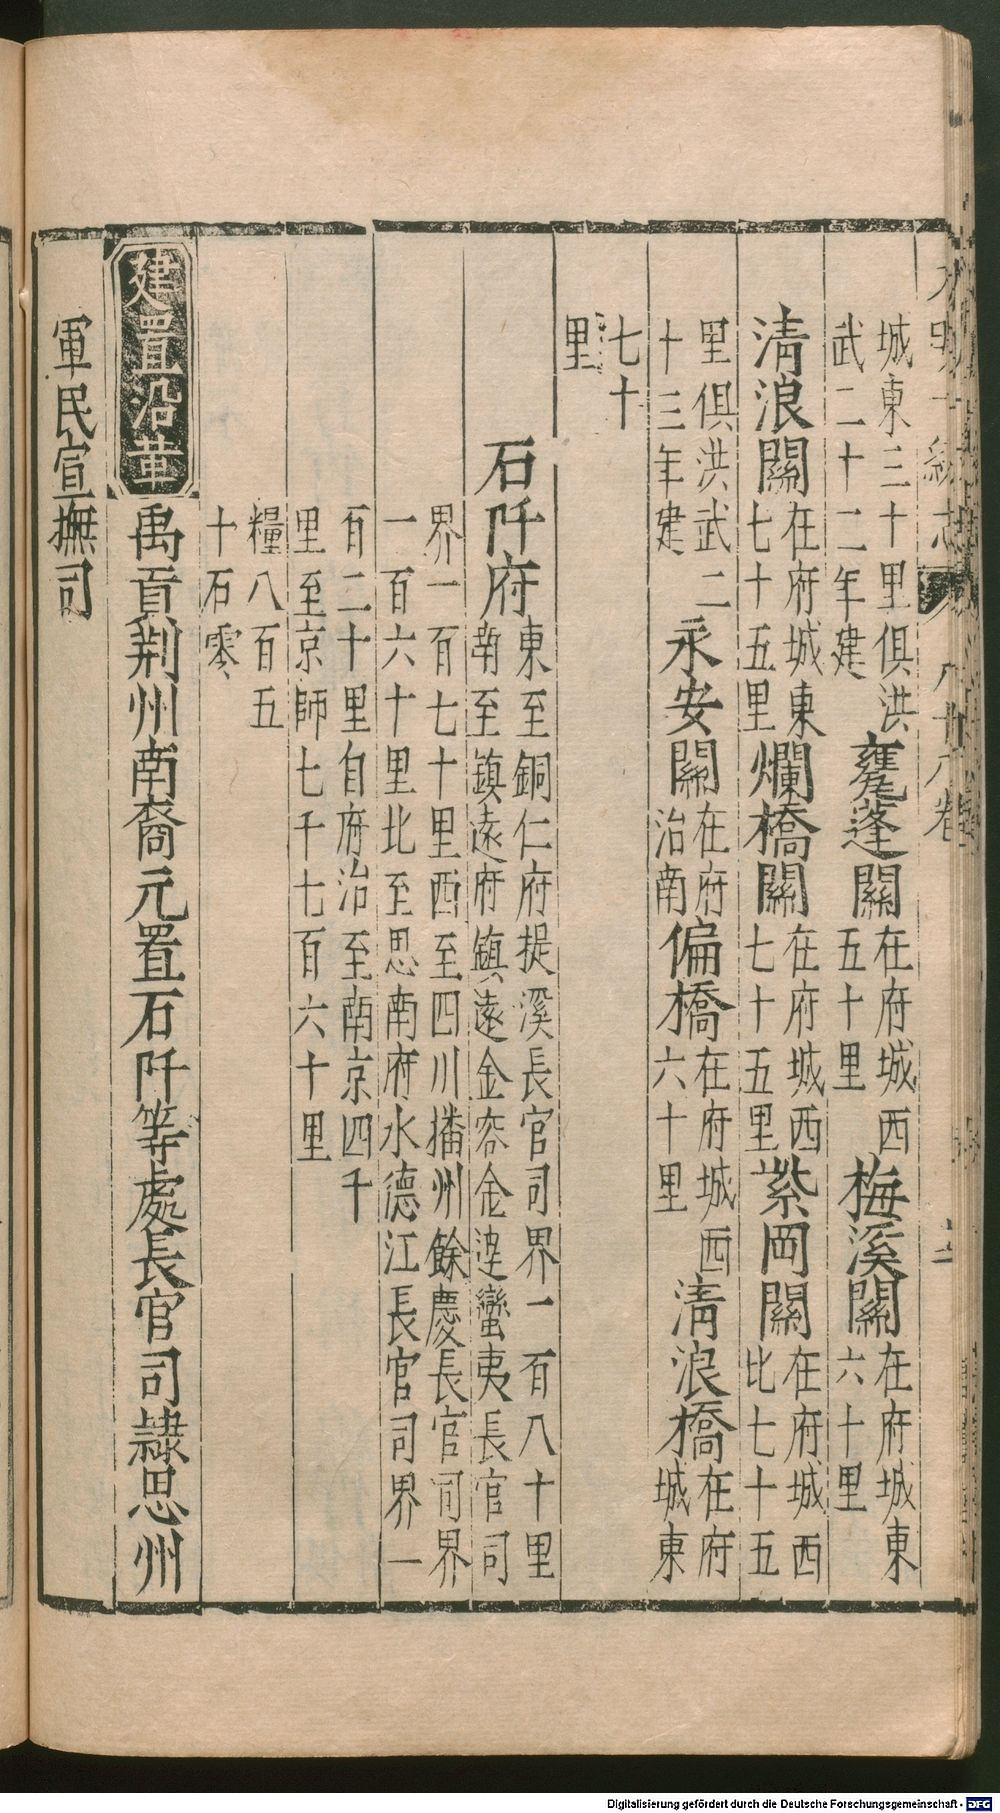 城東三十里俱洪武二十二年建甕蓬關在府城西五十里梅溪關在府城東六十里
清浪關在府城東七十五里爛橋關在府城西七十五里紫岡關在府城西比七十五
里俱洪武二十三年建永安關在府治南偏橋在府城西六十里清浪橋在府城東
七十里
石阡府東至銅仁府提溪長官司界一百八十里南至鎮遠府鎮遠金容金達蠻夷長官司
界一百七十里西至四川播州餘慶長官司界一百六十里北至思南府水德江長官司界一
百二十里自府治至南京四千里至京師七千七百六十里
糧八百五十石零
建置沿革禹貢荊州南裔元置石阡等處長官司隸思州
軍民宣撫司
Digitalisierung gefördert durch die Deutsche Forschungsgemeinschaft - DFG